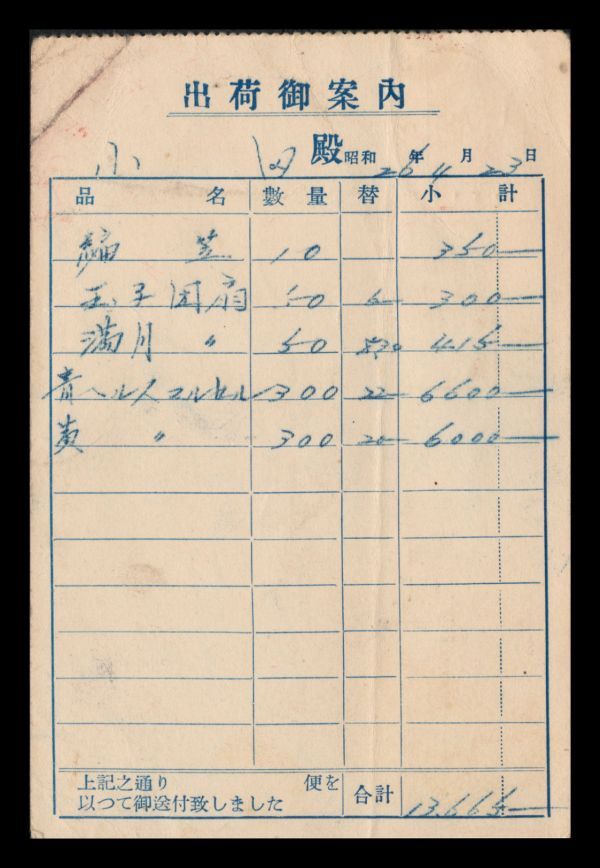 出荷御案内
小田殿 昭和26年4月23日
品名 數量 替 小計
編笠 10 350
玉子団扇 50 6 300
満月 〃 50 830 415
青ヘル人マルセル 300 22 6600
黄 〃 300 20 6000
上記之通り 便を
以つて御送付致しました
合計 13.665